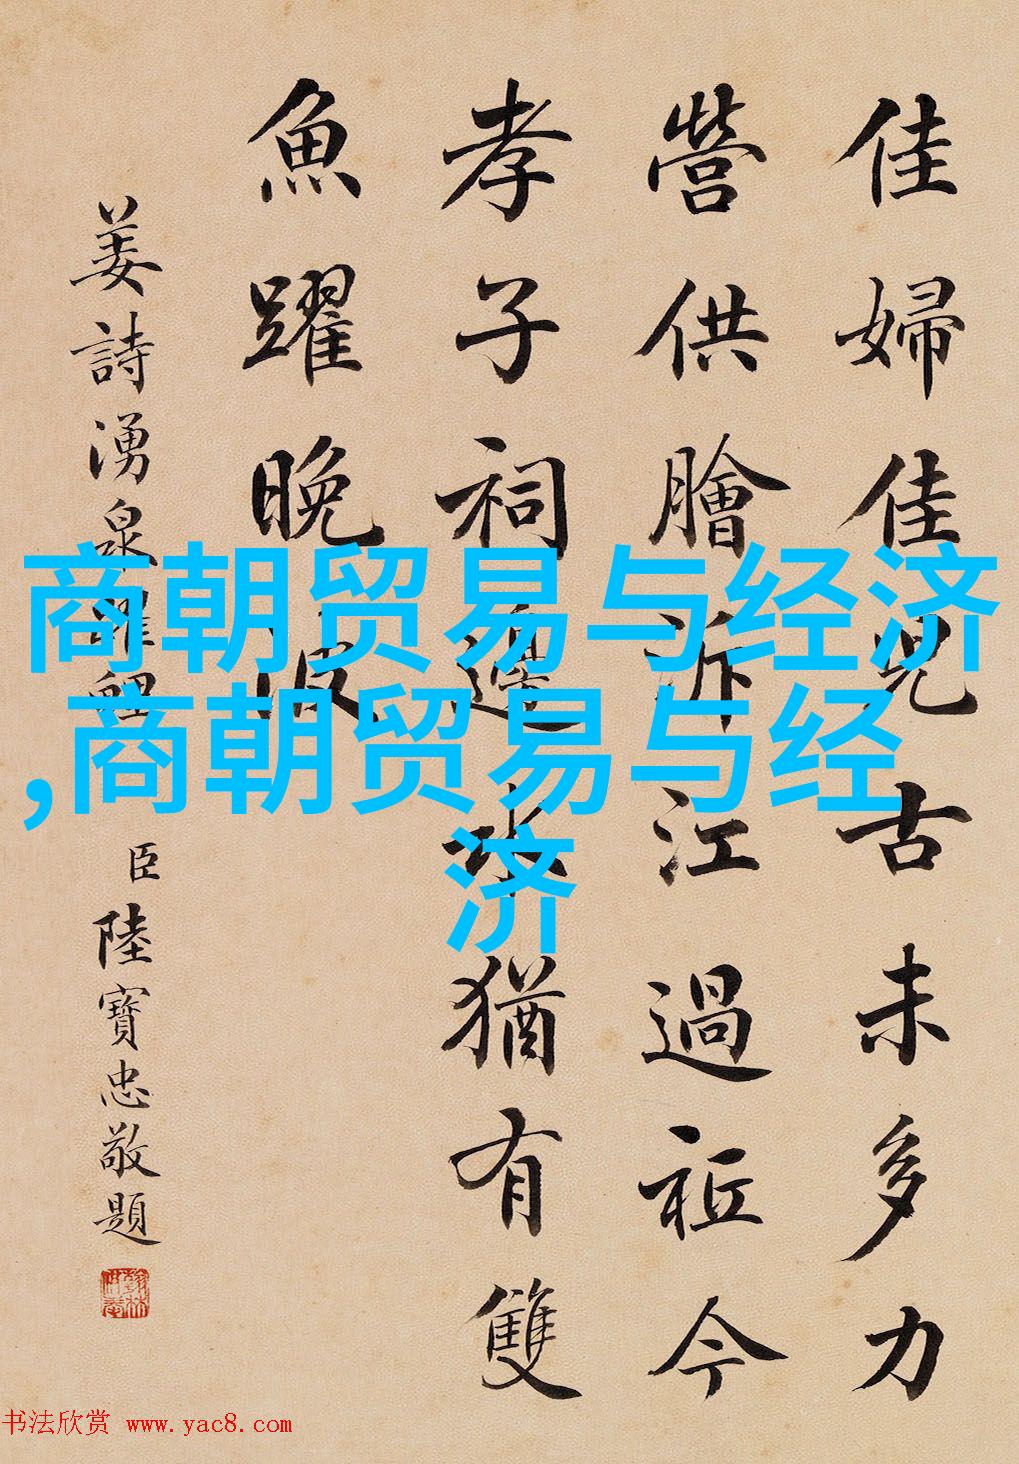 佳婦佳兒古未多力
營供膾訴江過祉今
孝子祠邊水猶有雙
魚躍晚波
姜詩湧泉躍鯉
臣陸寶忠敬題
商朝贸易与经济
,商朝贸易与经
济
书法欣赏 www.yac8.com